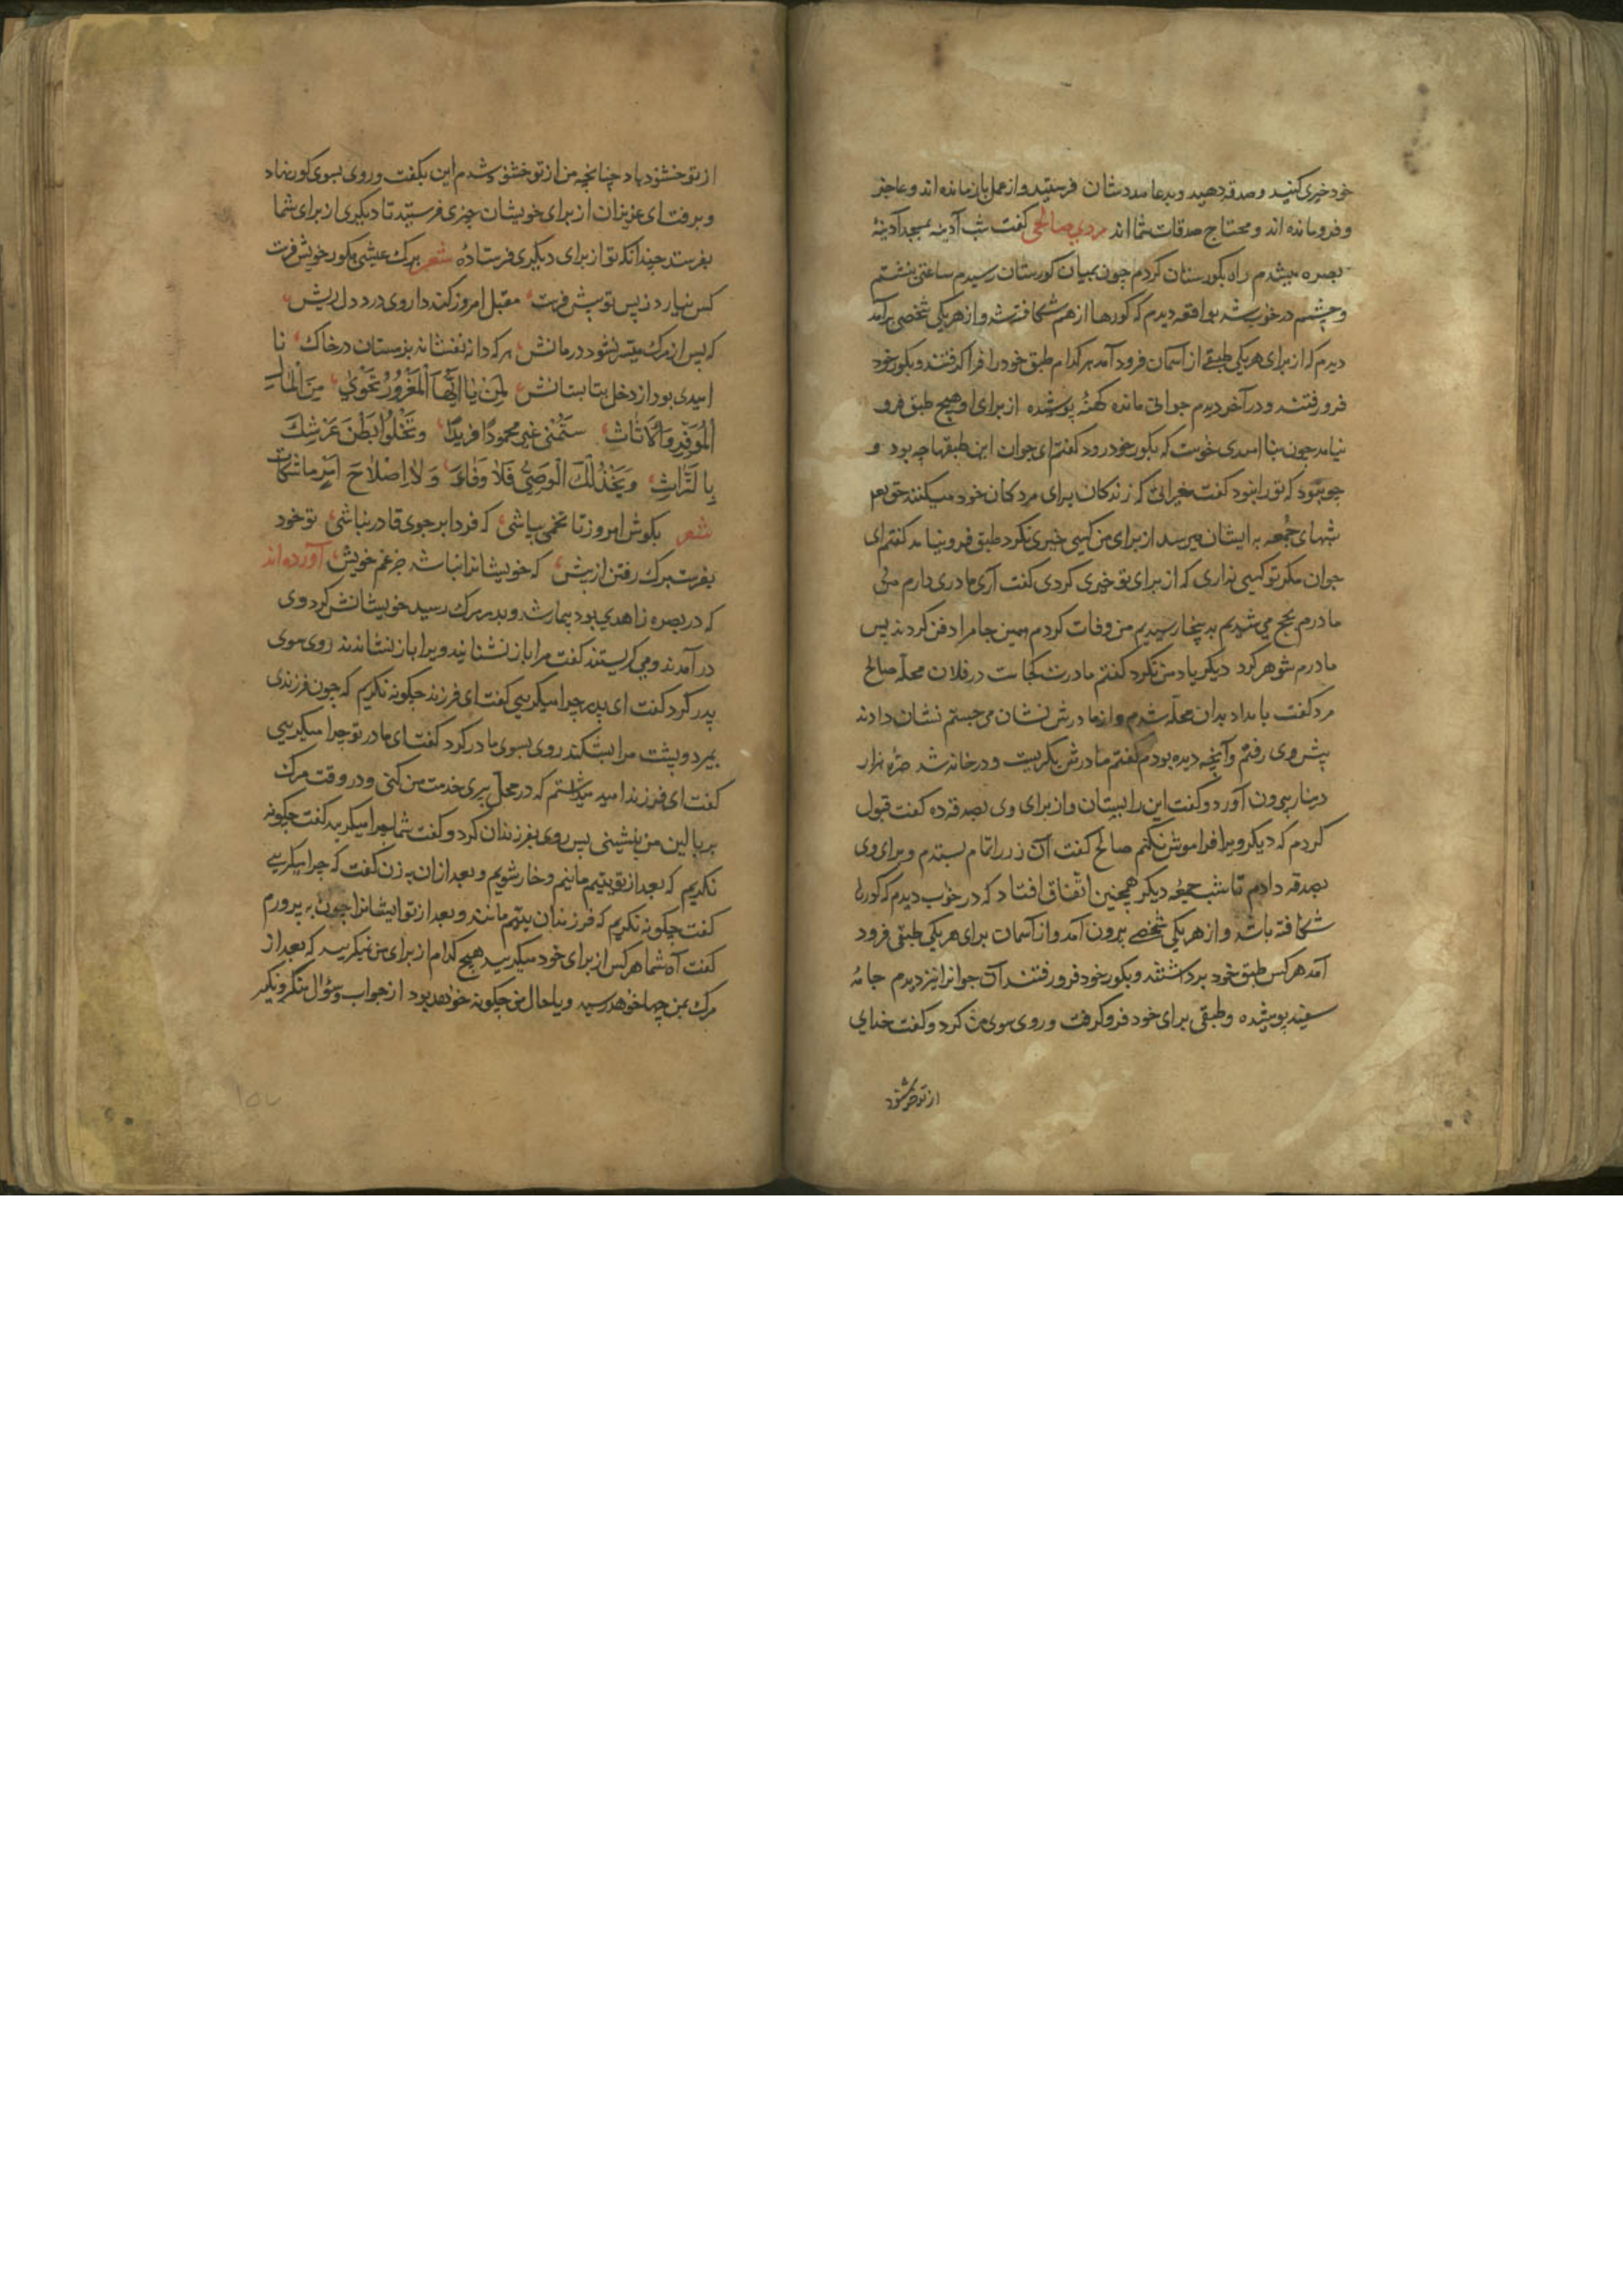 خود خیری کنید و صدقه دهید و بدعا مددشان فرستید و از عمل باز مانده اند و عاجز
و فرو مانده اند و محتاج صدقات شما اند مردی صالحی گفت شب آدینه بمسجد آدینهٔ
بصره میشدم راه بکورستان کردم چون بمیان کورستان رسیدم ساعتی بنشستم
و چشمم در خواب شد بواقعه دیدم که کورها از هم شکافته شد و از هر یکی شخصی برآمد
دیدم که از برای هر یکی طبقی از آسمان فرود آمد هر کدام طبق خود را فرا گرفتند و بکور خود
فرو رفتند و در آخر دیدم جوانی مانده کهنهٔ پوشیده از برای او هیچ طبق فرو
نیامد چون بنا امیدی خوست که بکور خود رود گفتم ای جوان این طبقها چه بود و
چه بود که تو را نبود گفت خیراتی که زندکان برای مردکان خود میکنند حق تع
شبهای جمعه به ایشان میرسد از برای من کسی خیری نکرد طبق فرو نیامد گفتم ای
جوان مکر تو کسی نداری که از برای تو خیری کردی گفت آری مادری دارم من
مادرم بحج می شدیم بدینجا رسیدیم من وفات کردم همین جا مرا دفن کردند پس
مادرم شوهر کرد دیکر یاد من نکرد گفتم مادرت کجاست در فلان محلّه صالح
مرد کفت بامداد بدان محلّه شدم و از مادرش نشان می جستم نشان دادند
پیش وی رفتم و آنچه دیده بودم گفتم مادرش بکریست و در خانه شد صرّه هزار
دینار بیرون آورد و گفت این را بستان و از برای وی بصدقه ده گفت قبول
کردم که دیکر ویرا فراموش نکنم صالح گفت آن زر را تمام بستدم و برای وی
بصدقه دادم تا شب جمعهٔ دیکر همچنین اتّفاق افتاد که در خوب دیدم که کورها
شکافته باشد و از هر یکی شخصی بیرون آمد و از آسمان برای هر یکی طبقی فرود
آمد هر کس طبق خود برداشتند و بکور خود فرو رفتند آن جوانرا نیز دیدم جامهٔ
سفید پوشیده و طبقی برای خود فرو کرفت و روی سوی من کرد و گفت خدای
از تو خشنود
از تو خشنود باد چنانچه من از تو خشنود شدم این بکفت و روی بسوی کور نهاد
و برفت ای عزیزان از برای خویشان چیزی فرستید تا دیکری از برای شما
بفرستد چندانکه تو از برای دیکری فرستادهٔ شعر برک عیشی بکور خویش فرست
کس نیارد ز پس تو پیش فرست مقبل امروز کند داروی درد دل ریش
که پس از مرک میسّر نشود درمانش هر که دانه نفشاند بزمستان در خاک نا
امیدی بود از دخل بتابستانش لمن یا ایّها المغرور تحوی من المال
الموفّر والاثاث ستمضی غیر محمود فریدًا و تخلوا بطن عرسک
بالتّراث و یخذلک الوصیّ فلا وفاء ولا اصلاح امر ماشکاث
شعر بکوش امروز تا تخمی بپاشی که فردا بر جوی قادر نباشی تو خود
بفرست برک رفتن از پیش که خویشانرا نباشد جز غم خویش آورده اند
که در بصره زاهدی بود بیمار شد و بدر مرک رسید خویشانش کرد وی
در آمدند و می کریستند گفت مرا باز نشانید ویرا باز نشاندند روی سوی
پدر کرد گفت ای پدر چرا میکریی گفت ای فرزند چکونه نکریم که چون فرزندی
بمیرد و پشت مرا بشکند روی بسوی مادر کرد گفت ای مادر تو چرا میکریی
گفت ای فرزند امید میداشتم که در محلّ پیری خدمت من کنی و در وقت مرک
بر بالین من بنشینی پس روی بفرزندان کرد و گفت شما چرا میکریید گفت چکونه
نکریم که بعد از تو یتیم مانیم و خار شویم و بعد از ان به زن گفت که چرا میکریی
گفت چکونه نکریم که فرزندان یتیم مانند و بعد از تو ایشانرا چون به پرورم
گفت آه شما هر کس از برای خود میکریید هیچ کدام از برای من نیکریید که بعد از
مرک بمن چها خوهد رسید و یا حال من چکونه خوهد بود از جواب و سؤال منکر و نکیر